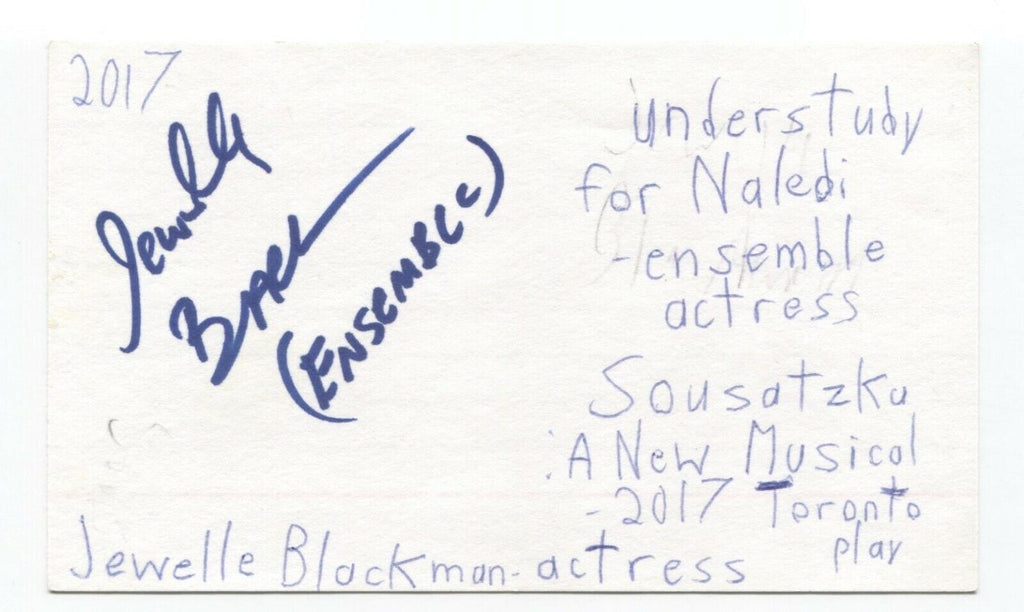 2017
Jewelle
(ENSEMBLE)
understudy
for Naledi
-ensemble
actress
Sousatzka
: A New Musical
- 2017 Toronto
play
Jewelle Blackman - actress